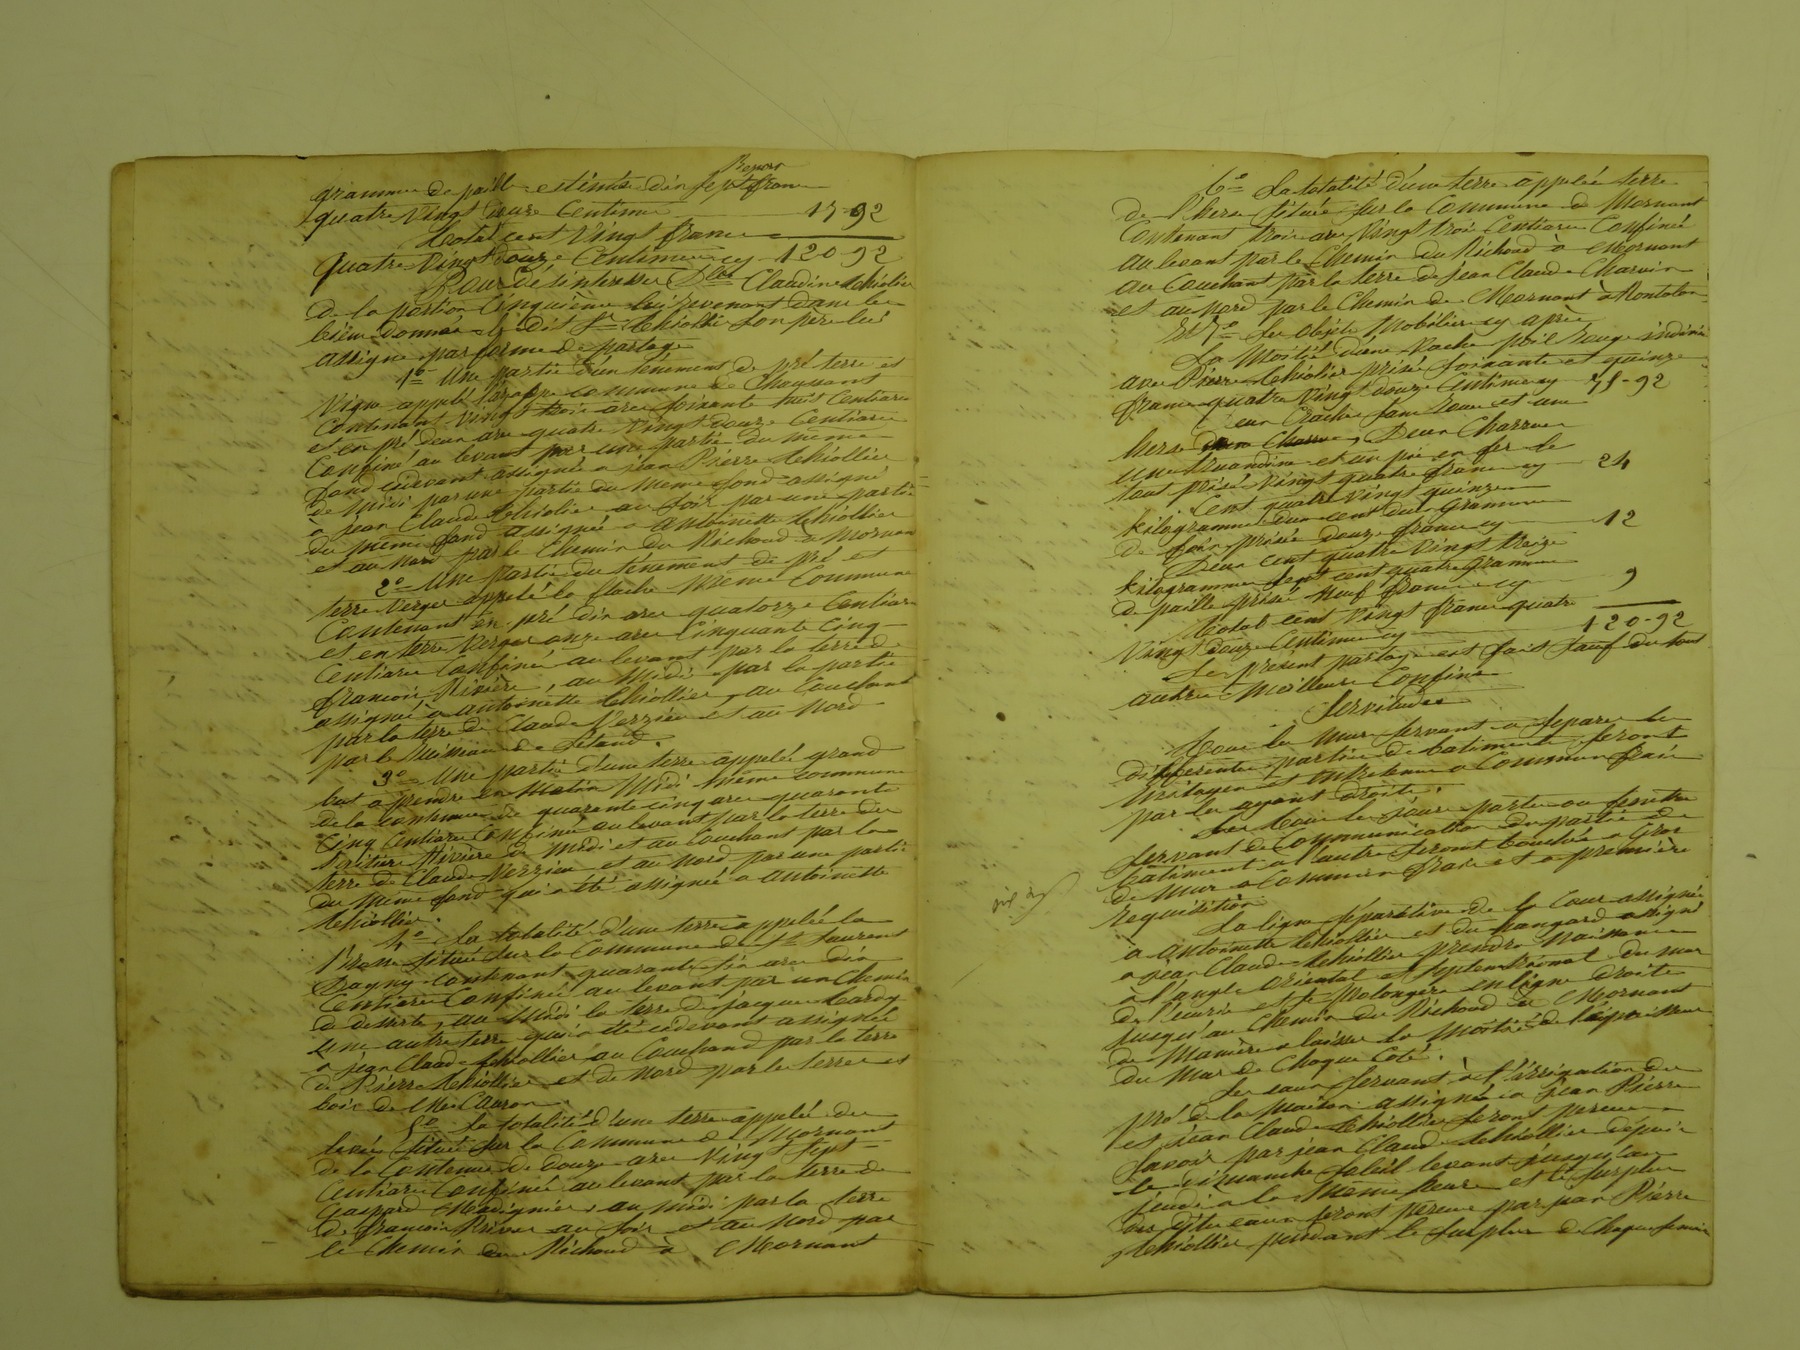 Report
grammes de paille estimés dix sept francs
quatre vingt douze centimes 17-92
Total cent vingt francs
quatre vingt douze centimes cy 120-92
Pour désintéresser Dlle Claudine Thiollier
de la portion cinquième lui revenant dans les
biens donnés le dit Sr Thiollier son père lui
assigne par forme de partage
1o Une partie d'un ténement de pré terre et
vigne appelé commune de Chaussant
contenant vingt trois ares soixante huit centiares
et en pré deux ares quatre vingt douze centiares
confiné au levant par une partie du même
fond cidevant assignée à jean Pierre Thiollier
de midi par une partie du même fond assigné
à jean Claude Thiollier au soir par une partie
du même fond assignée à antoinette Thiollier
et au nord par le chemin du Richoud à Mornan
2o Une partie du ténement de pré et
terre verger appelé la flache même commune
contenant en pré dix ares quatorze centiares
et en terre verger onze ares cinquante cinq
centiares confiné au levant par la terre de
françois Rivière, au midi par la partie
assignée à antoinette Thiollier, au couchant
par la terre de Claude Verzieu et au nord
par le ruisseau de
3o Une partie d'une terre appelée grand
but à prendre en matin midi même commune
de la contenue de quarante cinq ares quarante
cinq centiares confinée au levant par la terre du
Rivière de midi et au couchant par la
terre de Claude Verzieu et au nord par une partie
du même fond qui a été assignée à antoinette
Thiollier.
4o La totalité d'une terre appelée la
située sur la commune de St Laurent
Dagny contenant quarante six ares dix
centiares confinée au levant par un chemin
de desserte, au midi la terre de jacques
une autre terre qui a été cidevant assignée
à jean Claude Thiollier au couchand par la terre
de Pierre Thiollier et de nord par les terres et
bois de
5o La totalité d'une terre appelée du
située sur la commune de Mornant
de la contenue de douze ares vingt sept
centiares confinée au levant par la terre de
gaspard au midi par la terre
de françois Rivière au soir et au nord par
le chemin du Richoud à Mornant
6o La totalité d'une terre appelée terre
de l'herse située sur la commune de Mornant
contenant trois ares vingt trois centiares confinée
au levant par le chemin du Richoud à Mornant
au couchant par la terre de jean Claude Charvin
et au nord par le chemin de Mornant à Montalon
Et 7o Les objets mobiliers cy après
La moitié d'une vache poil rouge indivis
avec Pierre Thiollier prisée soixante et quinze
francs quatre vingt douze centimes cy 75-92
deux et une
herse deux charrues, deux charrues
une et un pic en fer le
tout prisé vingt quatre francs cy 24
Cent quatre vingt quinze
kilogrammes deux cent dix grammes
de foin prisés douze francs cy 12
Deux cent quatre vingt treize
kilogrammes sept cent quatre grammes
de paille prisés neuf francs cy 9
Total cent vingt francs quatre
vingt douze centimes cy 120-92
Le présent partage est fait sauf de tous
autres meilleurs confins
Servitudes
Tous les murs servant à séparer les
différentes parties de batiments seront
mitoyens et entretenus à communs frais
par les ayant droits.
Les tous les jours portes ou fenêtres
servant de communication du parties de
batiment à l'autre seront bouchés à gros
de mur à communs frais et à première
réquisition
La ligne séparative de la cour assignée
à antoinette Thiollier et du hangard assigné
à jean Claude Thiollier prendra naissance
à l'angle oriental et septentrional du mur
de l'écurie et se prolongera en ligne droite
jusqu'au chemin du Richoud à Mornant
de manière à laisser la moitié de l'épaisseur
du mur de chaque coté.
Les eaux servant à l'irrigation du
pré de la maison assignés à jean Pierre
et jean Claude Thiollier seront perçues
savoir par jean Claude Thiollier depuis
le dimanche soleil levant jusqu'au
jeudi à la même heure et le surplus
des dites eaux seront perçues par jean Pierre
Thiollier pendant le surplus de chaque semaine